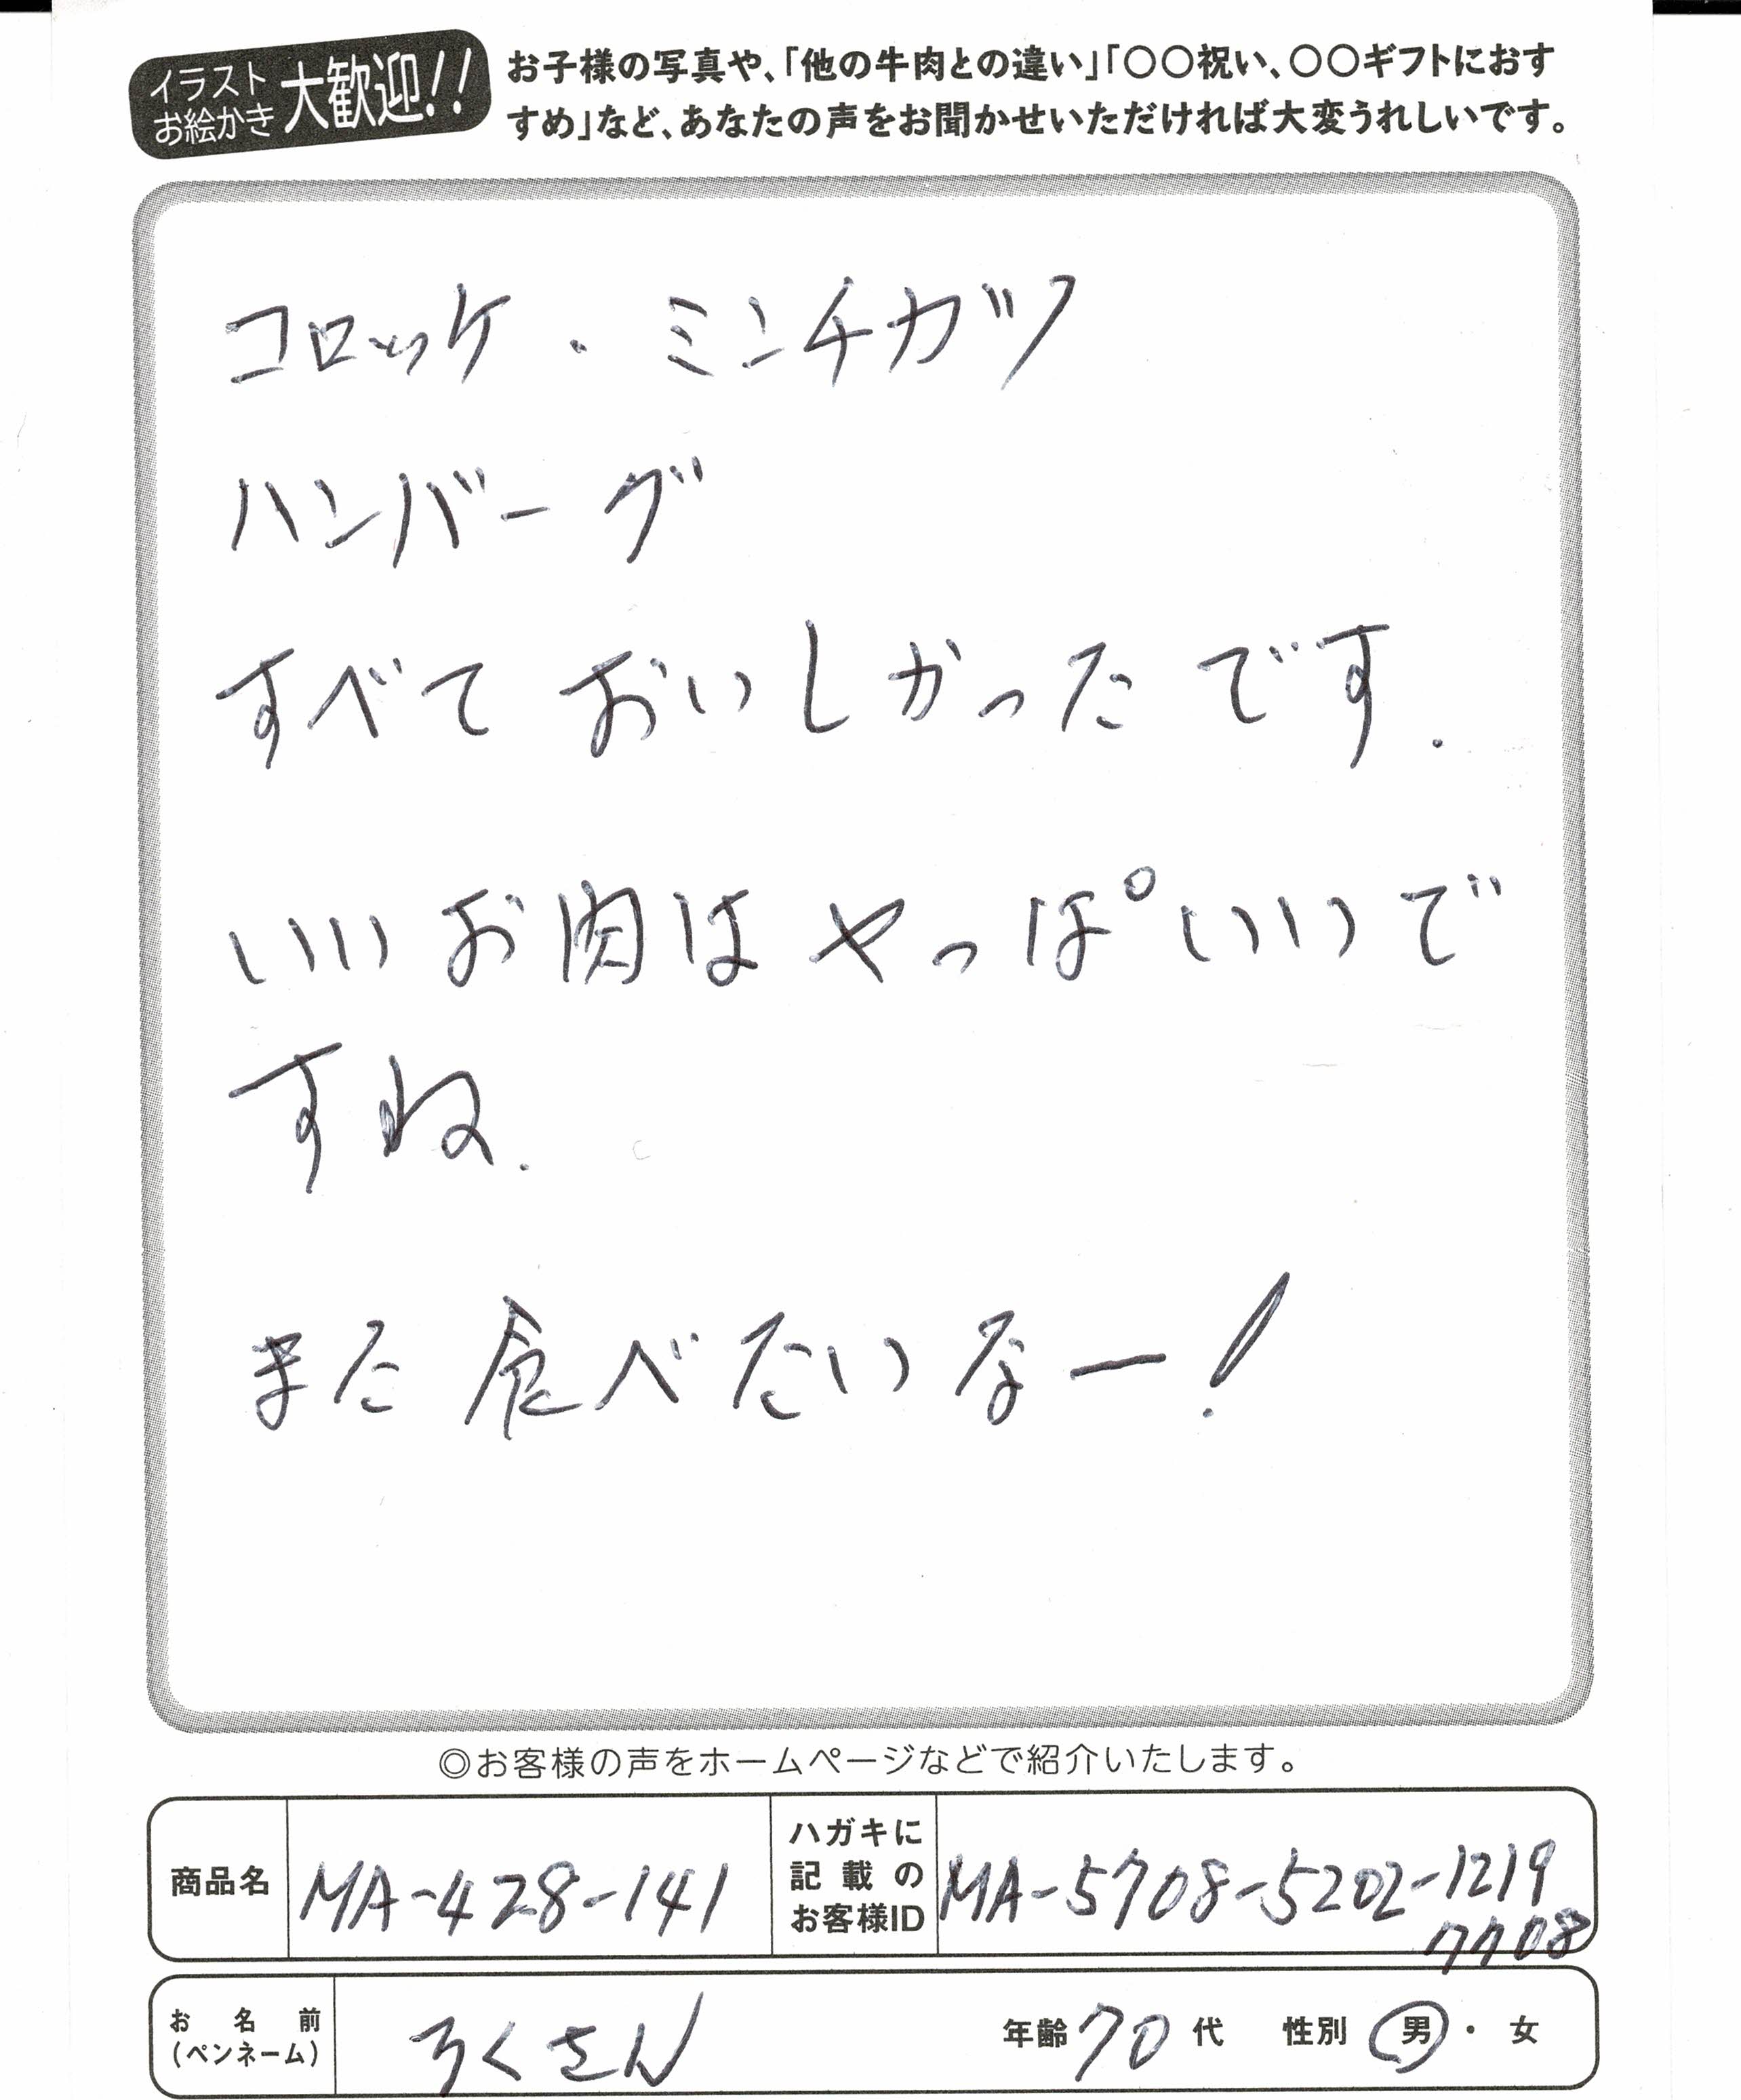 イラスト
お絵かき
大歓迎!!
お子様の写真や、「他の牛肉との違い」「〇〇祝い、〇〇ギフトにおす
すめ」など、あなたの声をお聞かせいただければ大変うれしいです。
コロッケ・ミンチカツ
ハンバーグ
すべておいしかったです.
いいお肉はやっぱいいで
すね.
また食べたいなー!
◎お客様の声をホームページなどで紹介いたします。
商品名 MA-428-141
ハガキに
記載の
お客様ID
MA-5708-5202-1219
7708
お名前
(ペンネーム)
ろくさん 年齢 70 代 性別 男・女